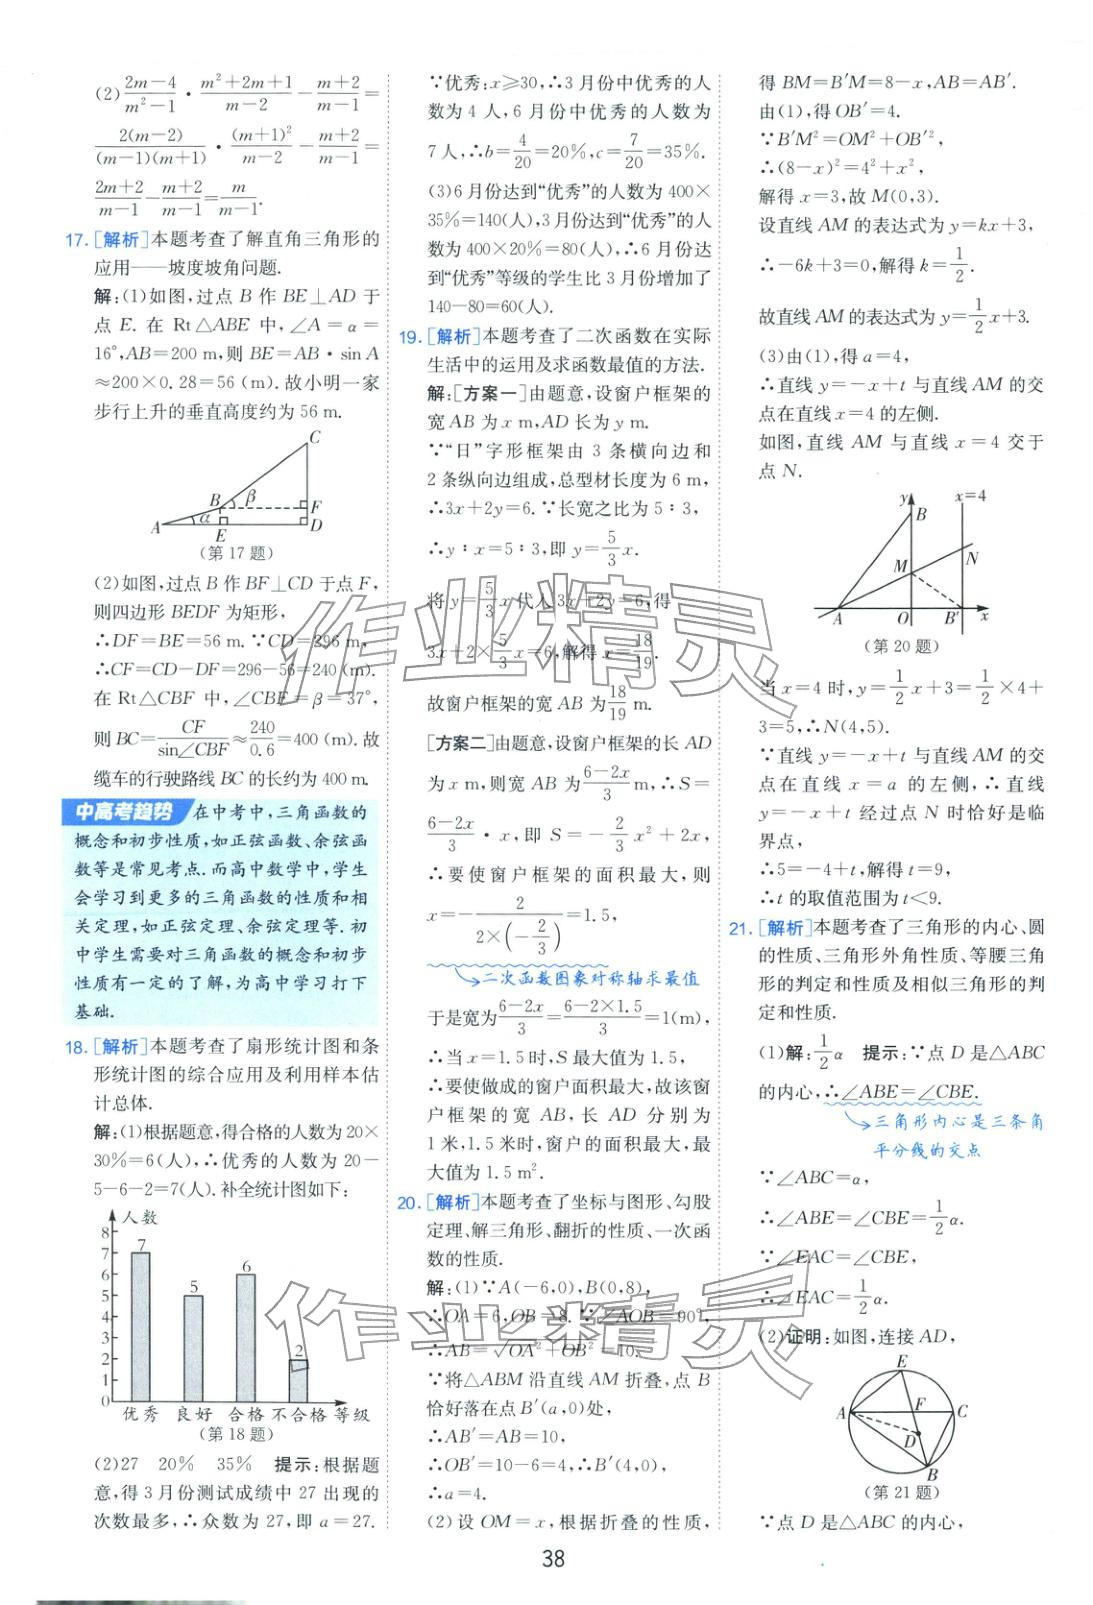 (2) (2m-4)/(m²-1)·(m²+2m+1)/(m-2)-(m+2)/(m-1)=
2(m-2)/((m-1)(m+1))·(m+1)²/(m-2)-(m+2)/(m-1)=
(2m+2)/(m-1)-(m+2)/(m-1)=m/(m-1).
17. [解析]本题考查了解直角三角形的
应用——坡度坡角问题.
解:(1)如图,过点 B 作 BE⊥AD 于
点 E. 在 Rt△ABE 中,∠A=α=
16°,AB=200 m,则 BE=AB·sin A
≈200×0.28=56 (m).故小明一家
步行上升的垂直高度约为 56 m.
C
B
β
F
A
α
E
D
(第 17 题)
(2)如图,过点 B 作 BF⊥CD 于点 F,
则四边形 BEDF 为矩形,
∴DF=BE=56 m.∵CD=296 m,
∴CF=CD-DF=296-56=240 (m).
在 Rt△CBF 中,∠CBF=β=37°,
则 BC=CF/sin∠CBF≈240/0.6=400 (m).故
缆车的行驶路线 BC 的长约为 400 m.
中高考趋势 在中考中,三角函数的
概念和初步性质,如正弦函数、余弦函
数等是常见考点.而高中数学中,学生
会学习到更多的三角函数的性质和相
关定理,如正弦定理、余弦定理等.初
中学生需要对三角函数的概念和初步
性质有一定的了解,为高中学习打下
基础.
18. [解析]本题考查了扇形统计图和条
形统计图的综合应用及利用样本估
计总体.
解:(1)根据题意,得合格的人数为 20×
30%=6(人),∴优秀的人数为 20-
5-6-2=7(人).补全统计图如下:
人数
8
7
6
5
4
3
2
1
0
7
5
6
2
优秀 良好 合格 不合格 等级
(第 18 题)
(2)27 20% 35% 提示:根据题
意,得 3 月份测试成绩中 27 出现的
次数最多,∴众数为 27,即 a=27.
∵优秀:x≥30,∴3 月份中优秀的人
数为 4 人,6 月份中优秀的人数为
7 人,∴b=4/20=20%,c=7/20=35%.
(3)6 月份达到“优秀”的人数为 400×
35%=140(人),3 月份达到“优秀”的人
数为 400×20%=80(人),∴6 月份达
到“优秀”等级的学生比 3 月份增加了
140-80=60(人).
19. [解析]本题考查了二次函数在实际
生活中的运用及求函数最值的方法.
解:[方案一]由题意,设窗户框架的
宽 AB 为 x m,AD 长为 y m.
∵“日”字形框架由 3 条横向边和
2 条纵向边组成,总型材长度为 6 m,
∴3x+2y=6.∵长宽之比为 5∶3,
∴y∶x=5∶3,即 y=5/3x.
将 y=5/3x 代入 3x+2y=6,得
3x+2×5/3x=6,解得 x=18/19.
故窗户框架的宽 AB 为18/19 m.
[方案二]由题意,设窗户框架的长 AD
为 x m,则宽 AB 为(6-2x)/3 m,∴S=
(6-2x)/3·x,即 S=-2/3x²+2x,
∴要使窗户框架的面积最大,则
x=-2/(2×(-2/3))=1.5,
二次函数图象对称轴求最值
于是宽为(6-2x)/3=(6-2×1.5)/3=1(m),
∴当 x=1.5 时,S 最大值为 1.5,
∴要使做成的窗户面积最大,故该窗
户框架的宽 AB,长 AD 分别为
1 米,1.5 米时,窗户的面积最大,最
大值为 1.5 m².
20. [解析]本题考查了坐标与图形、勾股
定理、解三角形、翻折的性质、一次函
数的性质.
解:(1)∵A(-6,0),B(0,8),
∴OA=6,OB=8.∵∠AOB=90°,
∴AB=√(OA²+OB²)=10.
∵将△ABM 沿直线 AM 折叠,点 B
恰好落在点 B′(a,0)处,
∴AB′=AB=10,
∴OB′=10-6=4,∴B′(4,0),
∴a=4.
(2)设 OM=x,根据折叠的性质,
得 BM=B′M=8-x,AB=AB′.
由(1),得 OB′=4.
∵B′M²=OM²+OB′²,
∴(8-x)²=4²+x²,
解得 x=3,故 M(0,3).
设直线 AM 的表达式为 y=kx+3,
∴-6k+3=0,解得 k=1/2.
故直线 AM 的表达式为 y=1/2x+3.
(3)由(1),得 a=4,
∴直线 y=-x+t 与直线 AM 的交
点在直线 x=4 的左侧.
如图,直线 AM 与直线 x=4 交于
点 N.
y
x=4
B
M
N
A
O
B′
x
(第 20 题)
当 x=4 时,y=1/2x+3=1/2×4+
3=5,∴N(4,5).
∵直线 y=-x+t 与直线 AM 的交
点在直线 x=a 的左侧,∴直线
y=-x+t 经过点 N 时恰好是临
界点,
∴5=-4+t,解得 t=9,
∴t 的取值范围为 t<9.
21. [解析]本题考查了三角形的内心、圆
的性质、三角形外角性质、等腰三角
形的判定和性质及相似三角形的判
定和性质.
(1)解:1/2α 提示:∵点 D 是△ABC
的内心,∴∠ABE=∠CBE.
三角形内心是三条角
平分线的交点
∵∠ABC=α,
∴∠ABE=∠CBE=1/2α.
∵∠EAC=∠CBE,
∴∠EAC=1/2α.
(2)证明:如图,连接 AD,
E
A
F
C
D
B
(第 21 题)
∵点 D 是△ABC 的内心,
作业精灵
作业精灵
38